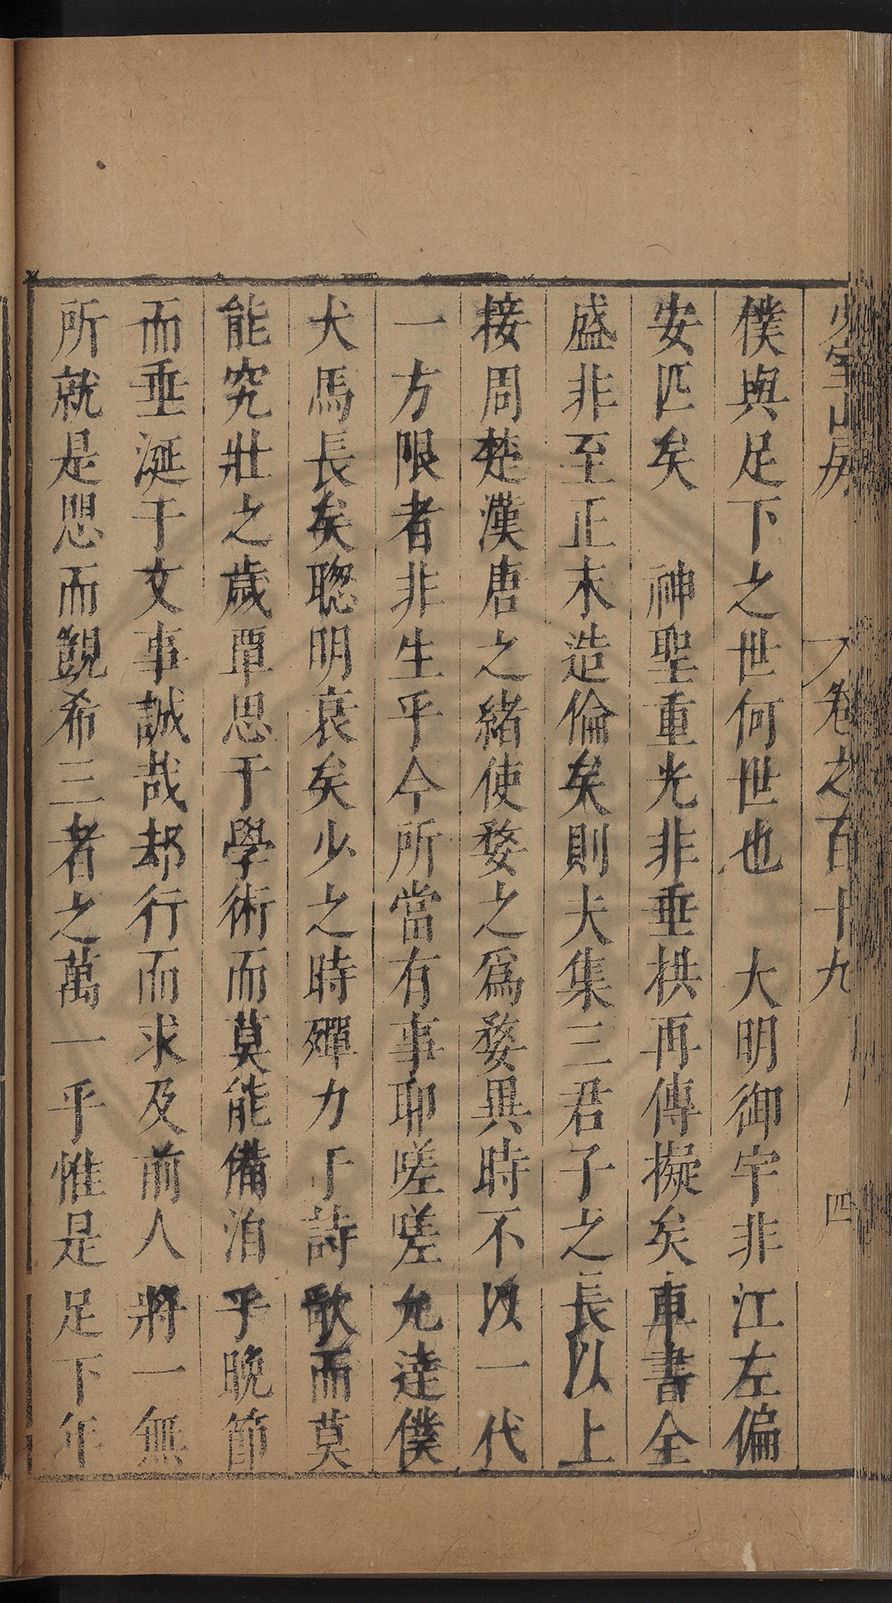 少室山房 卷之百十九 四
僕與足下之世何世也 大明御宇非江左偏
安匹矣 神聖重光非垂拱再傳擬矣車書全
盛非至正末造倫矣則夫集三君子之長以上
接周楚漢唐之緒使婺之為婺異時不以一代
一方限者非生乎今所當有事耶嗟嗟允達僕
犬馬長矣聦明衰矣少之時殫力于詩歌而莫
能究壯之歲覃思于學術而莫能備洎乎晚節
而垂涎于文事誠哉却行而求及前人將一無
所就是思而覬希三者之萬一乎惟是足下年